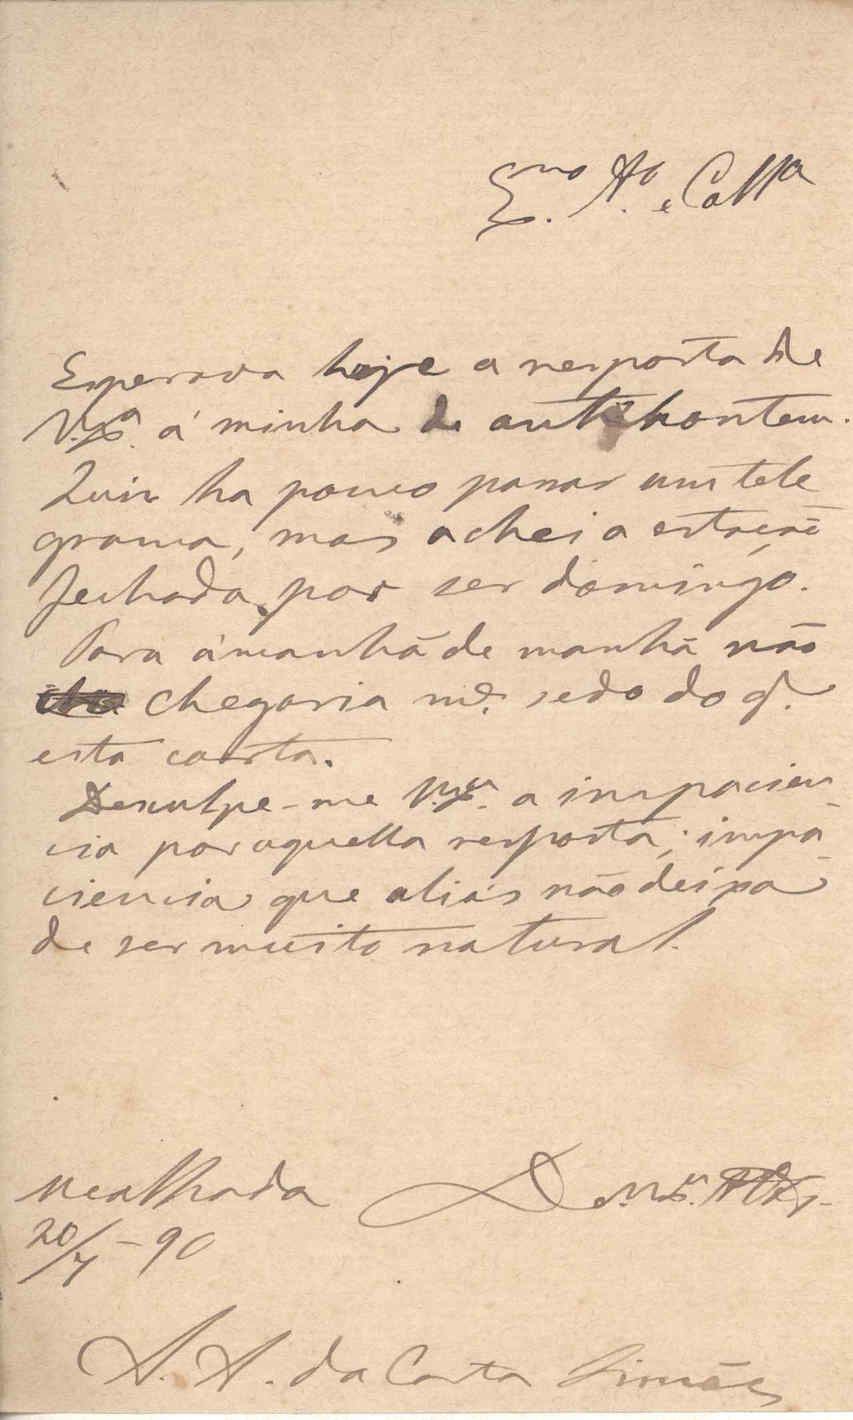 Exmo. Amo. e Collga
Esperava hoje a resposta de
V. Exa. á minha de antehontem.
Quis ha pouco passar um tele
grama, mas achei a estação
fechada, por ser domingo.
Para ámanhã de manhã não
chegaria mto. sedo do q.
esta carta.
Desculpe-me V. Exa. a impacien-
cia por aquella resposta; impa-
ciencia que aliás não deixa
de ser muito natural.
Mealhada
De V. Exa.
20/7-90
A. A. da Costa Simões